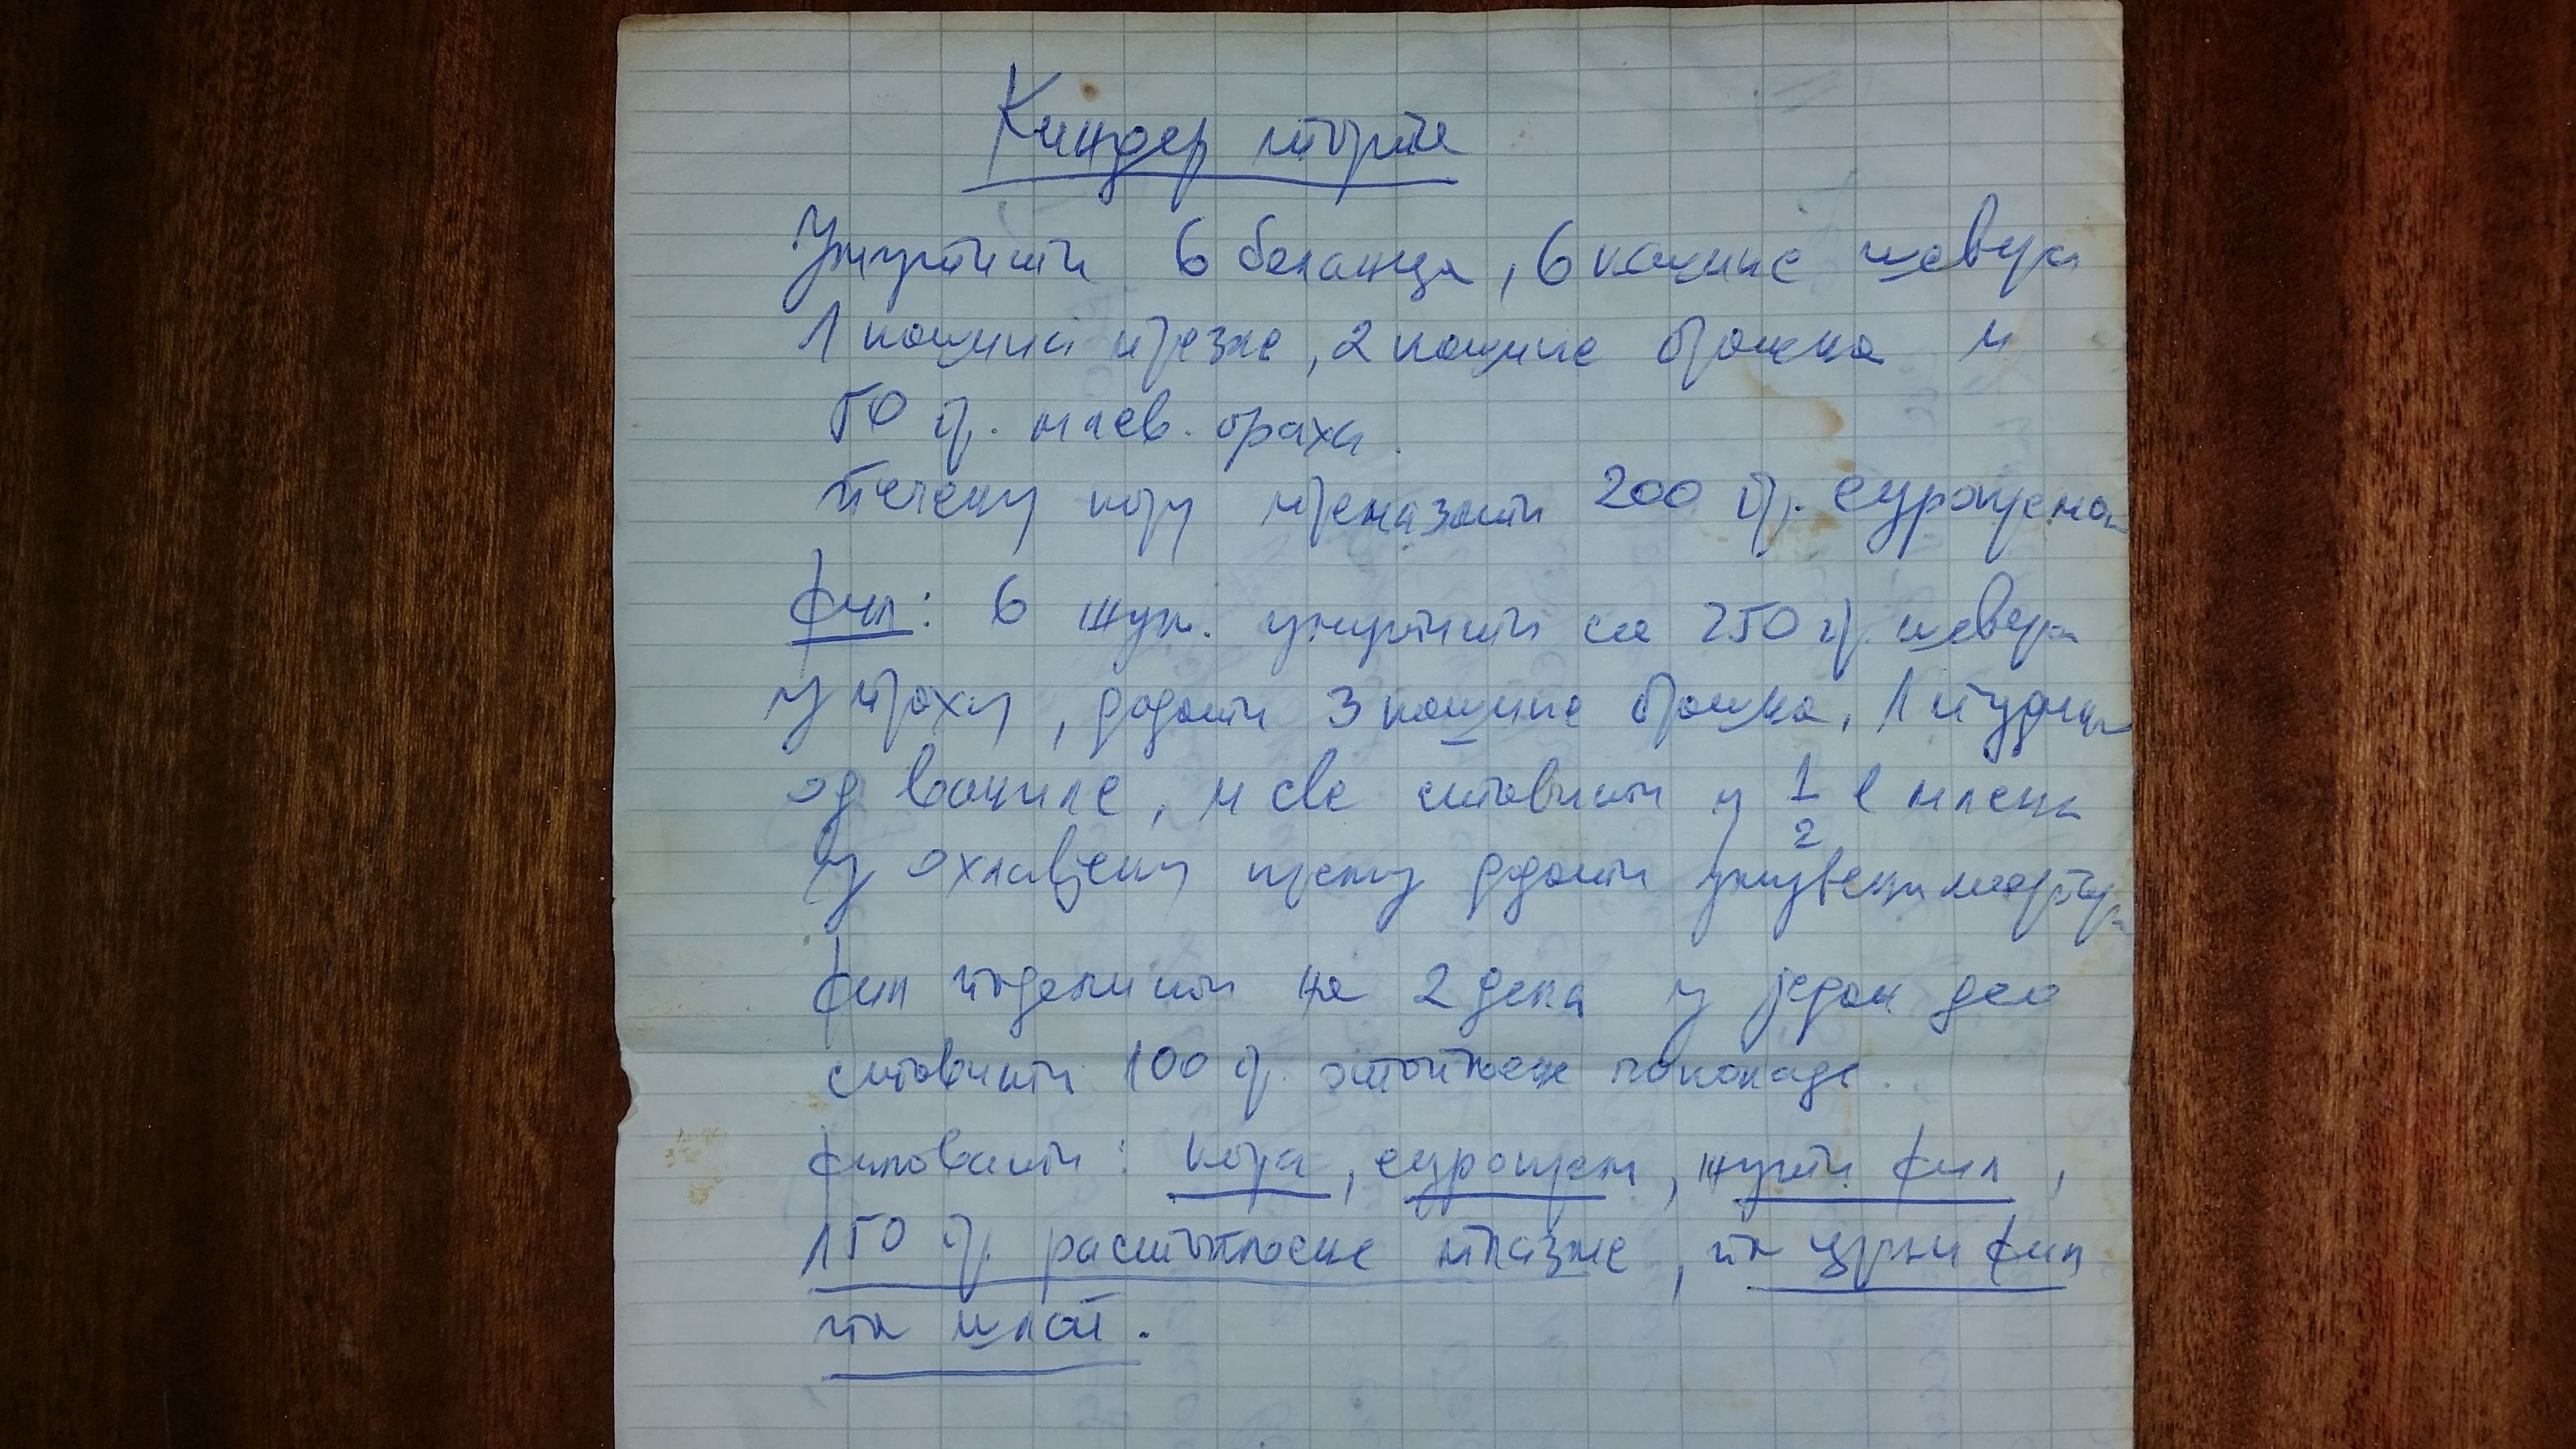 Киндер торта
Умутити 6 беланца, 6 кашике шећера
1 кашика презле, 2 кашике брашна и
50 гр. млев. ораха.
Печену кору премазати 200 гр. еурокрема
Фил: 6 жум. умутити са 250 гр. шећера
у праху, додати 3 кашике брашна, 1 пудинг
од ваниле, и све ставити у 1/2 л млека
У охлађену крему додати умућени маргар.
Фил поделити на 2 дела у један део
ставити 100 гр. отопљене чоколаде.
Филовати: кора, еурокрем, жути фил,
150 гр. растопљене плазме, па црни фил
па шлаг.